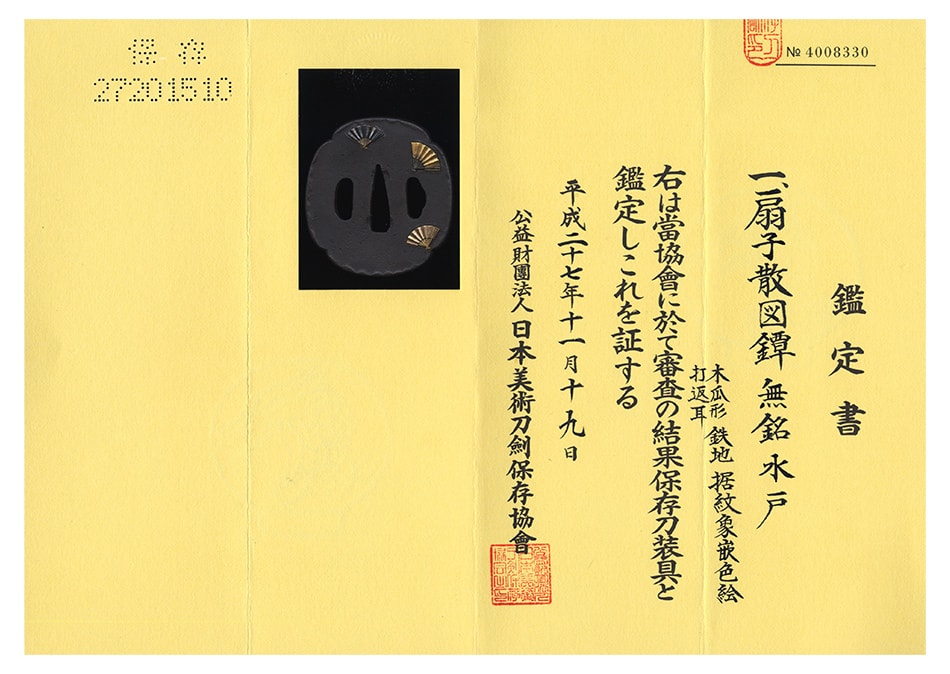 № 4008330
鑑定書
一、扇子散図鐔 無銘 水戸
木瓜形 鉄地 据紋象嵌色絵
打返耳
右は當協會に於て審査の結果保存刀装具と
鑑定しこれを証する
平成二十七年十一月十九日
公益財團法人 日本美術刀劍保存協會
保存
27201510